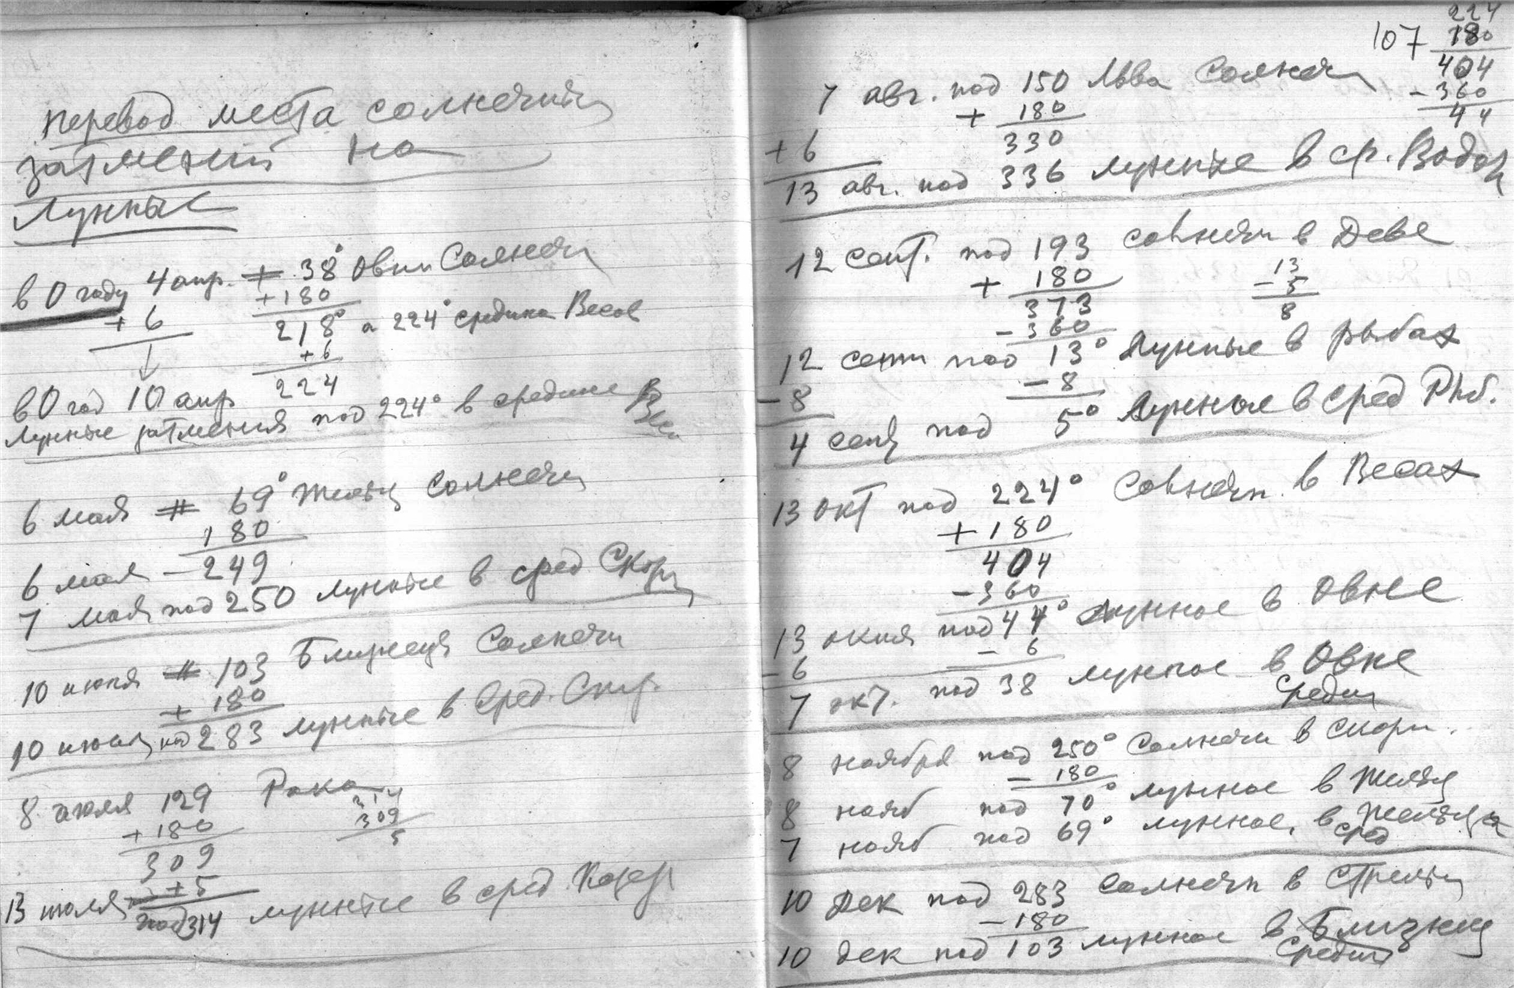 перевод места солнечных
затмений на
Лунные
в 0 году 4 апр. + 38° Овни Солнечн
+ 6 +180
218° а 224° средина Весов
+6
224
в 0 год 10 апр
Лунные затмения под 224° в средине Весо
6 мая # 69° Тельц солнечн
180
6 мая - 249
7 мая под 250 лунные в сред Скорп
10 июня # 103 Близнецы Солнечн
+ 180
10 июня под 283 лунные в Сред.
8 июля 129 Рака
+180
309
+5
314
309
5
13 июля под 314 лунные в сред. Козер
107
224
180
404
-360
44
7 авг. под 150 Льва Солнечн
+ 180
+ 6 330
13 авг. под 336 лунные в ср. Водол
12 сент. под 193 солнечн в Деве
+ 180
373
- 360
13
- 5
8
12 сент под 13° Лунные в рыбах
- 8 - 8
4 сент под 5° Лунные в сред Рыб.
13 окт под 224° солнечн. в Весах
+ 180
404
- 360
13 октя под 44° лунное в Овне
- 6 - 6
7 окт. под 38 лунное в Овне
средин
8 ноября под 250° Солнечн в скорп.
- 180
8 нояб под 70° лунное в Тельц
7 нояб под 69° лунное, в Тельца
сред
10 дек под 283 солнечн в Стрельц
- 180
10 дек под 103 лунное в Близнец
Средин